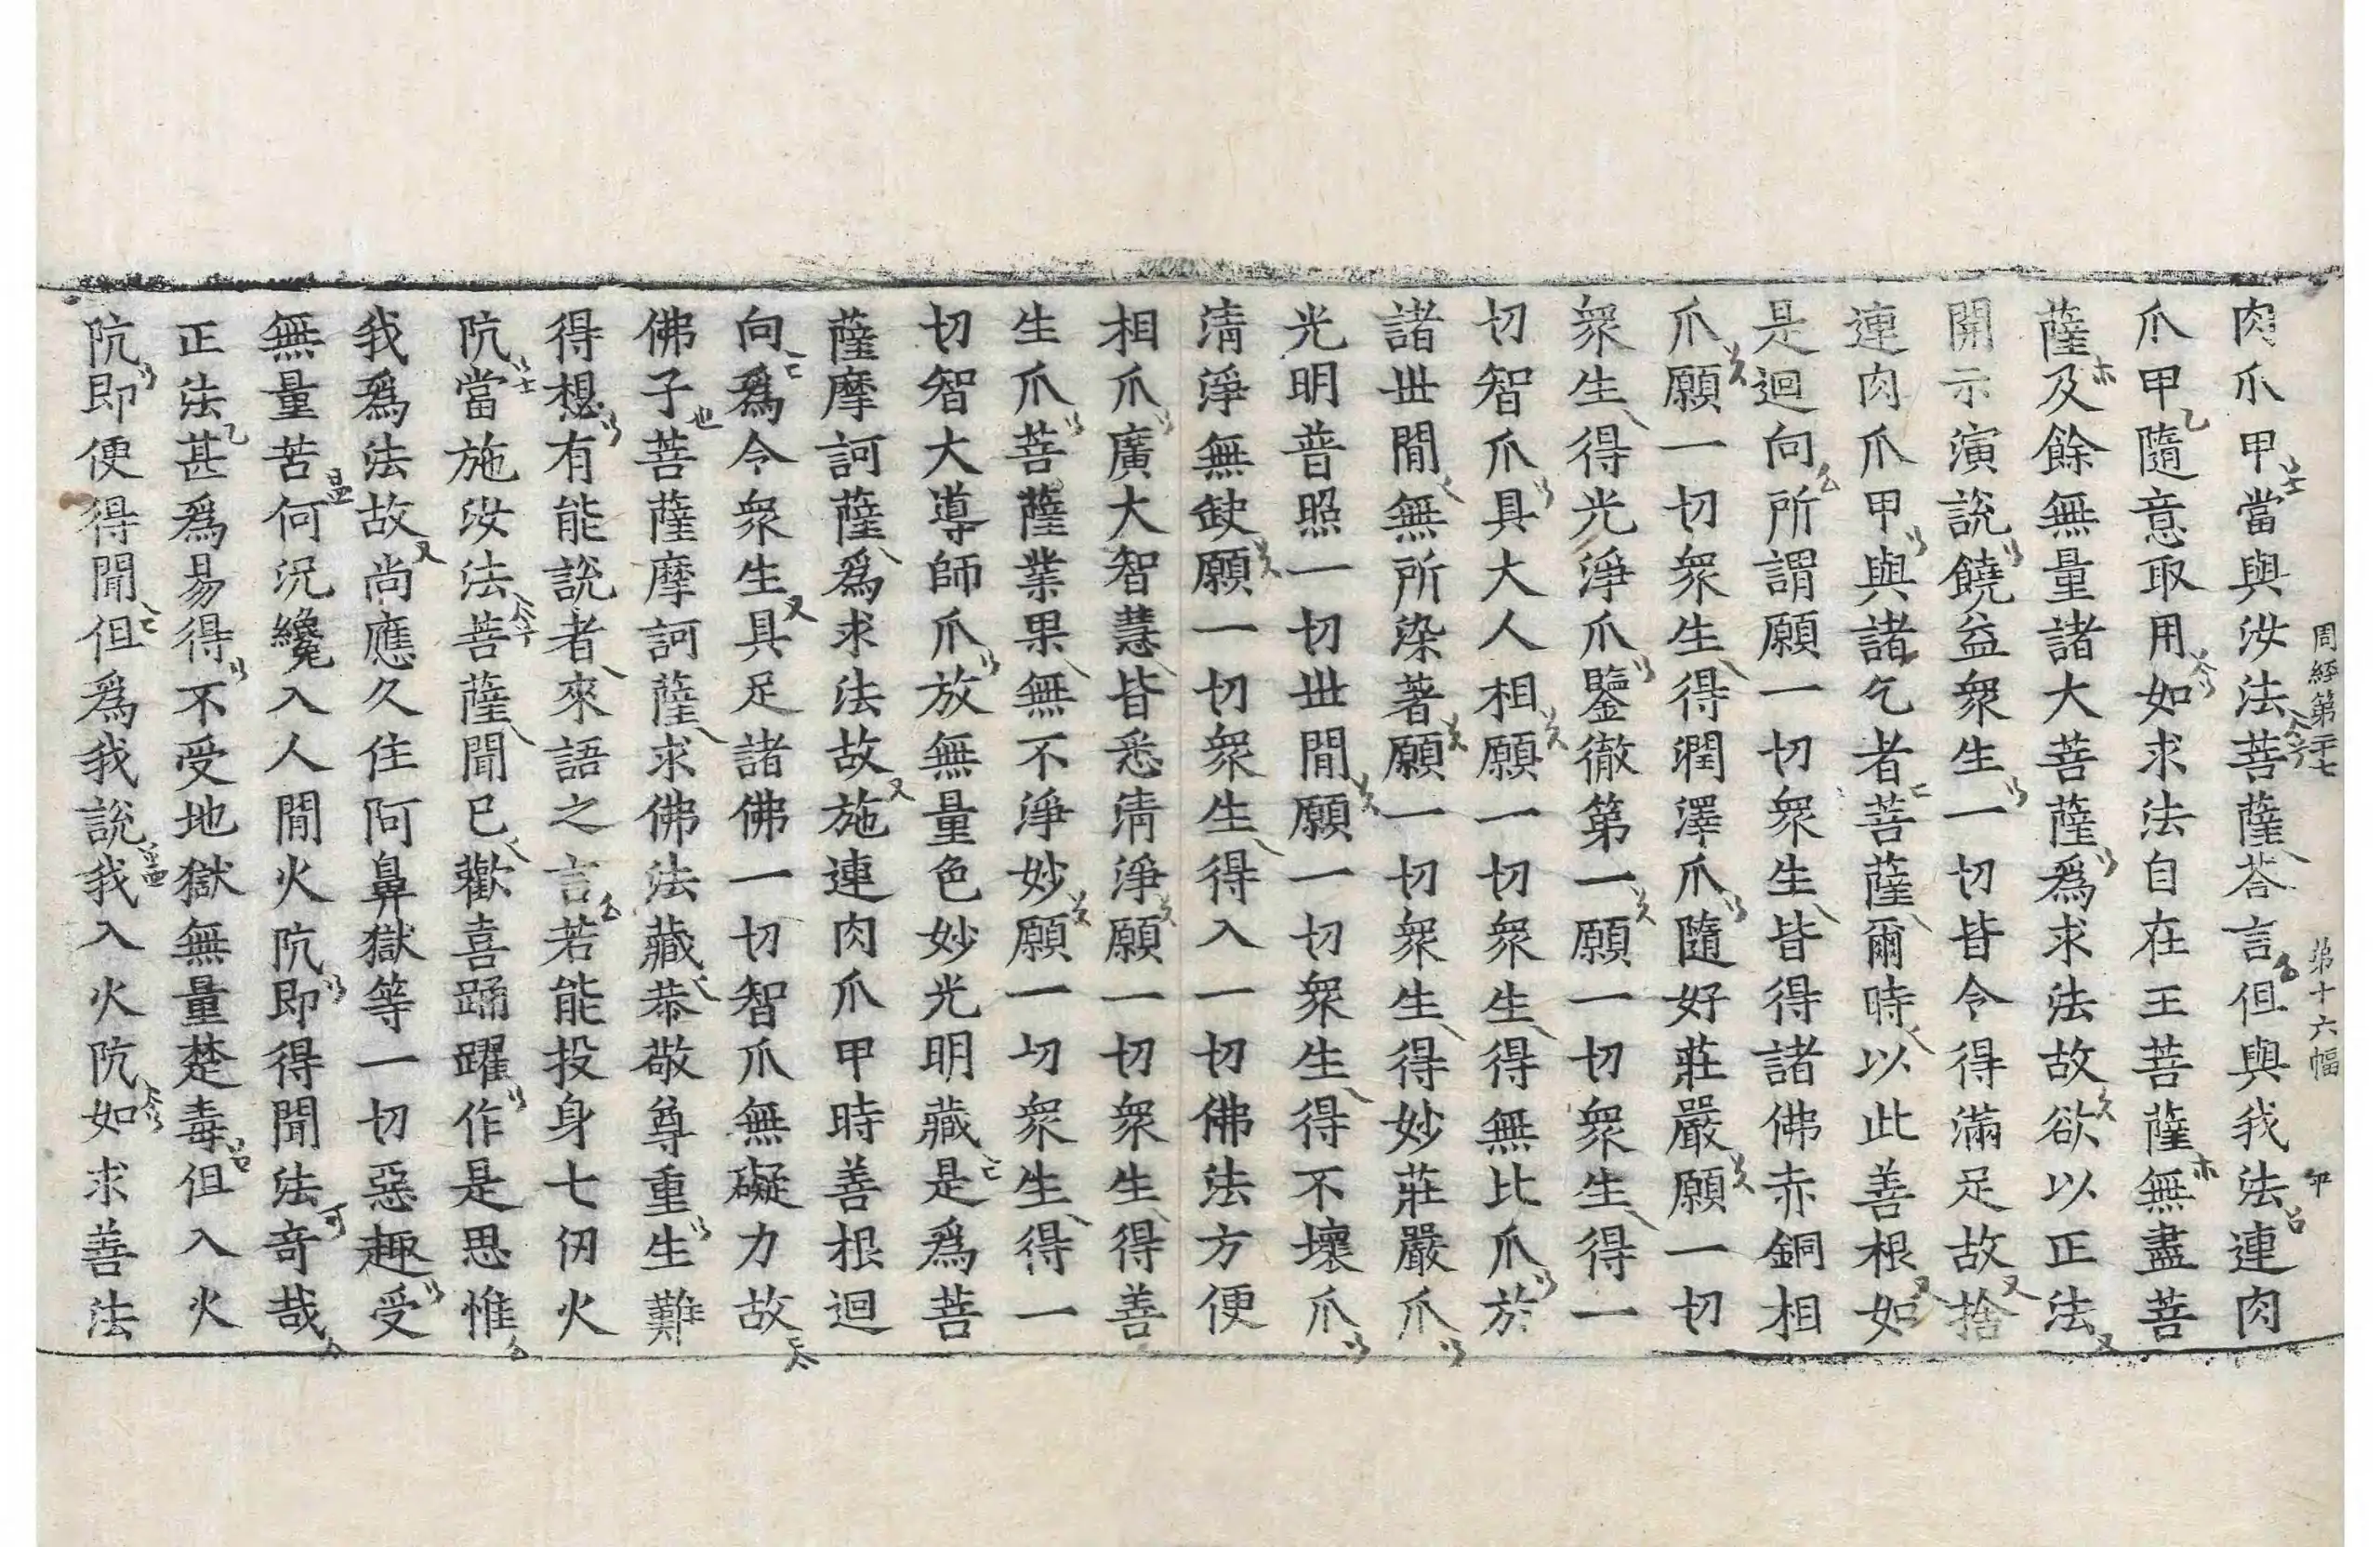 周經第二十七 第十六幅 卯
肉爪甲當與汝法菩薩荅言但與我法連肉
爪甲隨意取用如求法自在王菩薩無盡菩
薩及餘無量諸大菩薩爲求法故欲以正法
開示演說饒益衆生一切皆令得滿足故捨
連肉爪甲與諸乞者菩薩爾時以此善根如
是迴向所謂願一切衆生皆得諸佛赤銅相
爪願一切衆生得潤澤爪隨好莊嚴願一切
衆生得光淨爪鑒徹第一願一切衆生得一
切智爪具大人相願一切衆生得無比爪於
諸世閒無所染著願一切衆生得妙莊嚴爪
光明普照一切世間願一切衆生得不壞爪
淸淨無缺願一切衆生得入一切佛法方便
相爪廣大智慧皆悉淸淨願一切衆生得善
生爪菩薩業果無不淨妙願一切衆生得一
切智大導師爪放無量色妙光明藏是爲菩
薩摩訶薩爲求法故施連肉爪甲時善根迴
向爲令衆生具足諸佛一切智爪無礙力故
佛子菩薩摩訶薩求佛法藏恭敬尊重生難
得想有能說者來語之言若能投身七仞火
阬當施汝法菩薩聞已歡喜踊躍作是思惟
我爲法故尚應久住阿鼻獄等一切惡趣受
無量苦何況纔入人間火阬即得聞法奇哉
正法甚爲易得不受地獄無量楚毒但入火
阬即便得聞但爲我說我入火阬如求善法